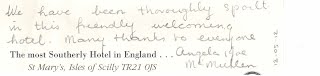 We have been thoroughly spoilt
in this friendly welcoming
hotel. Many thanks to everyone
The most Southerly Hotel in England . . . Angela
St Mary's, Isles of Scilly TR21 0JS McMullen